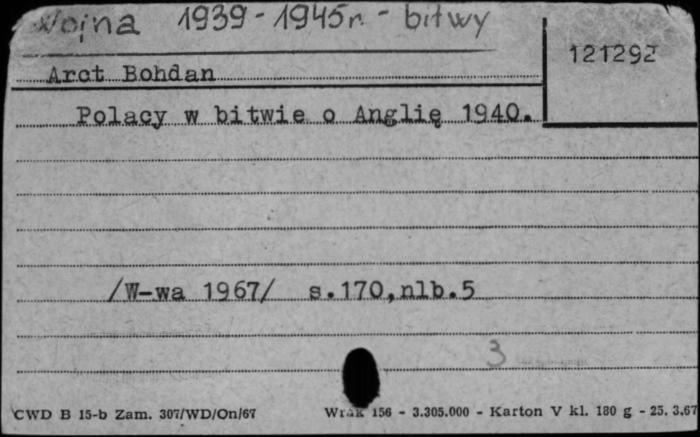 Wojna 1939-1945r. - bitwy
121292
Arct Bohdan
Polacy w bitwie o Anglię 1940.
/W-wa 1967/ s.170,nlb.5
3
CWD B 15-b Zam. 307/WD/On/67 Wrak 156 - 3.305.000 - Karton V kl. 180 g - 25. 3.67